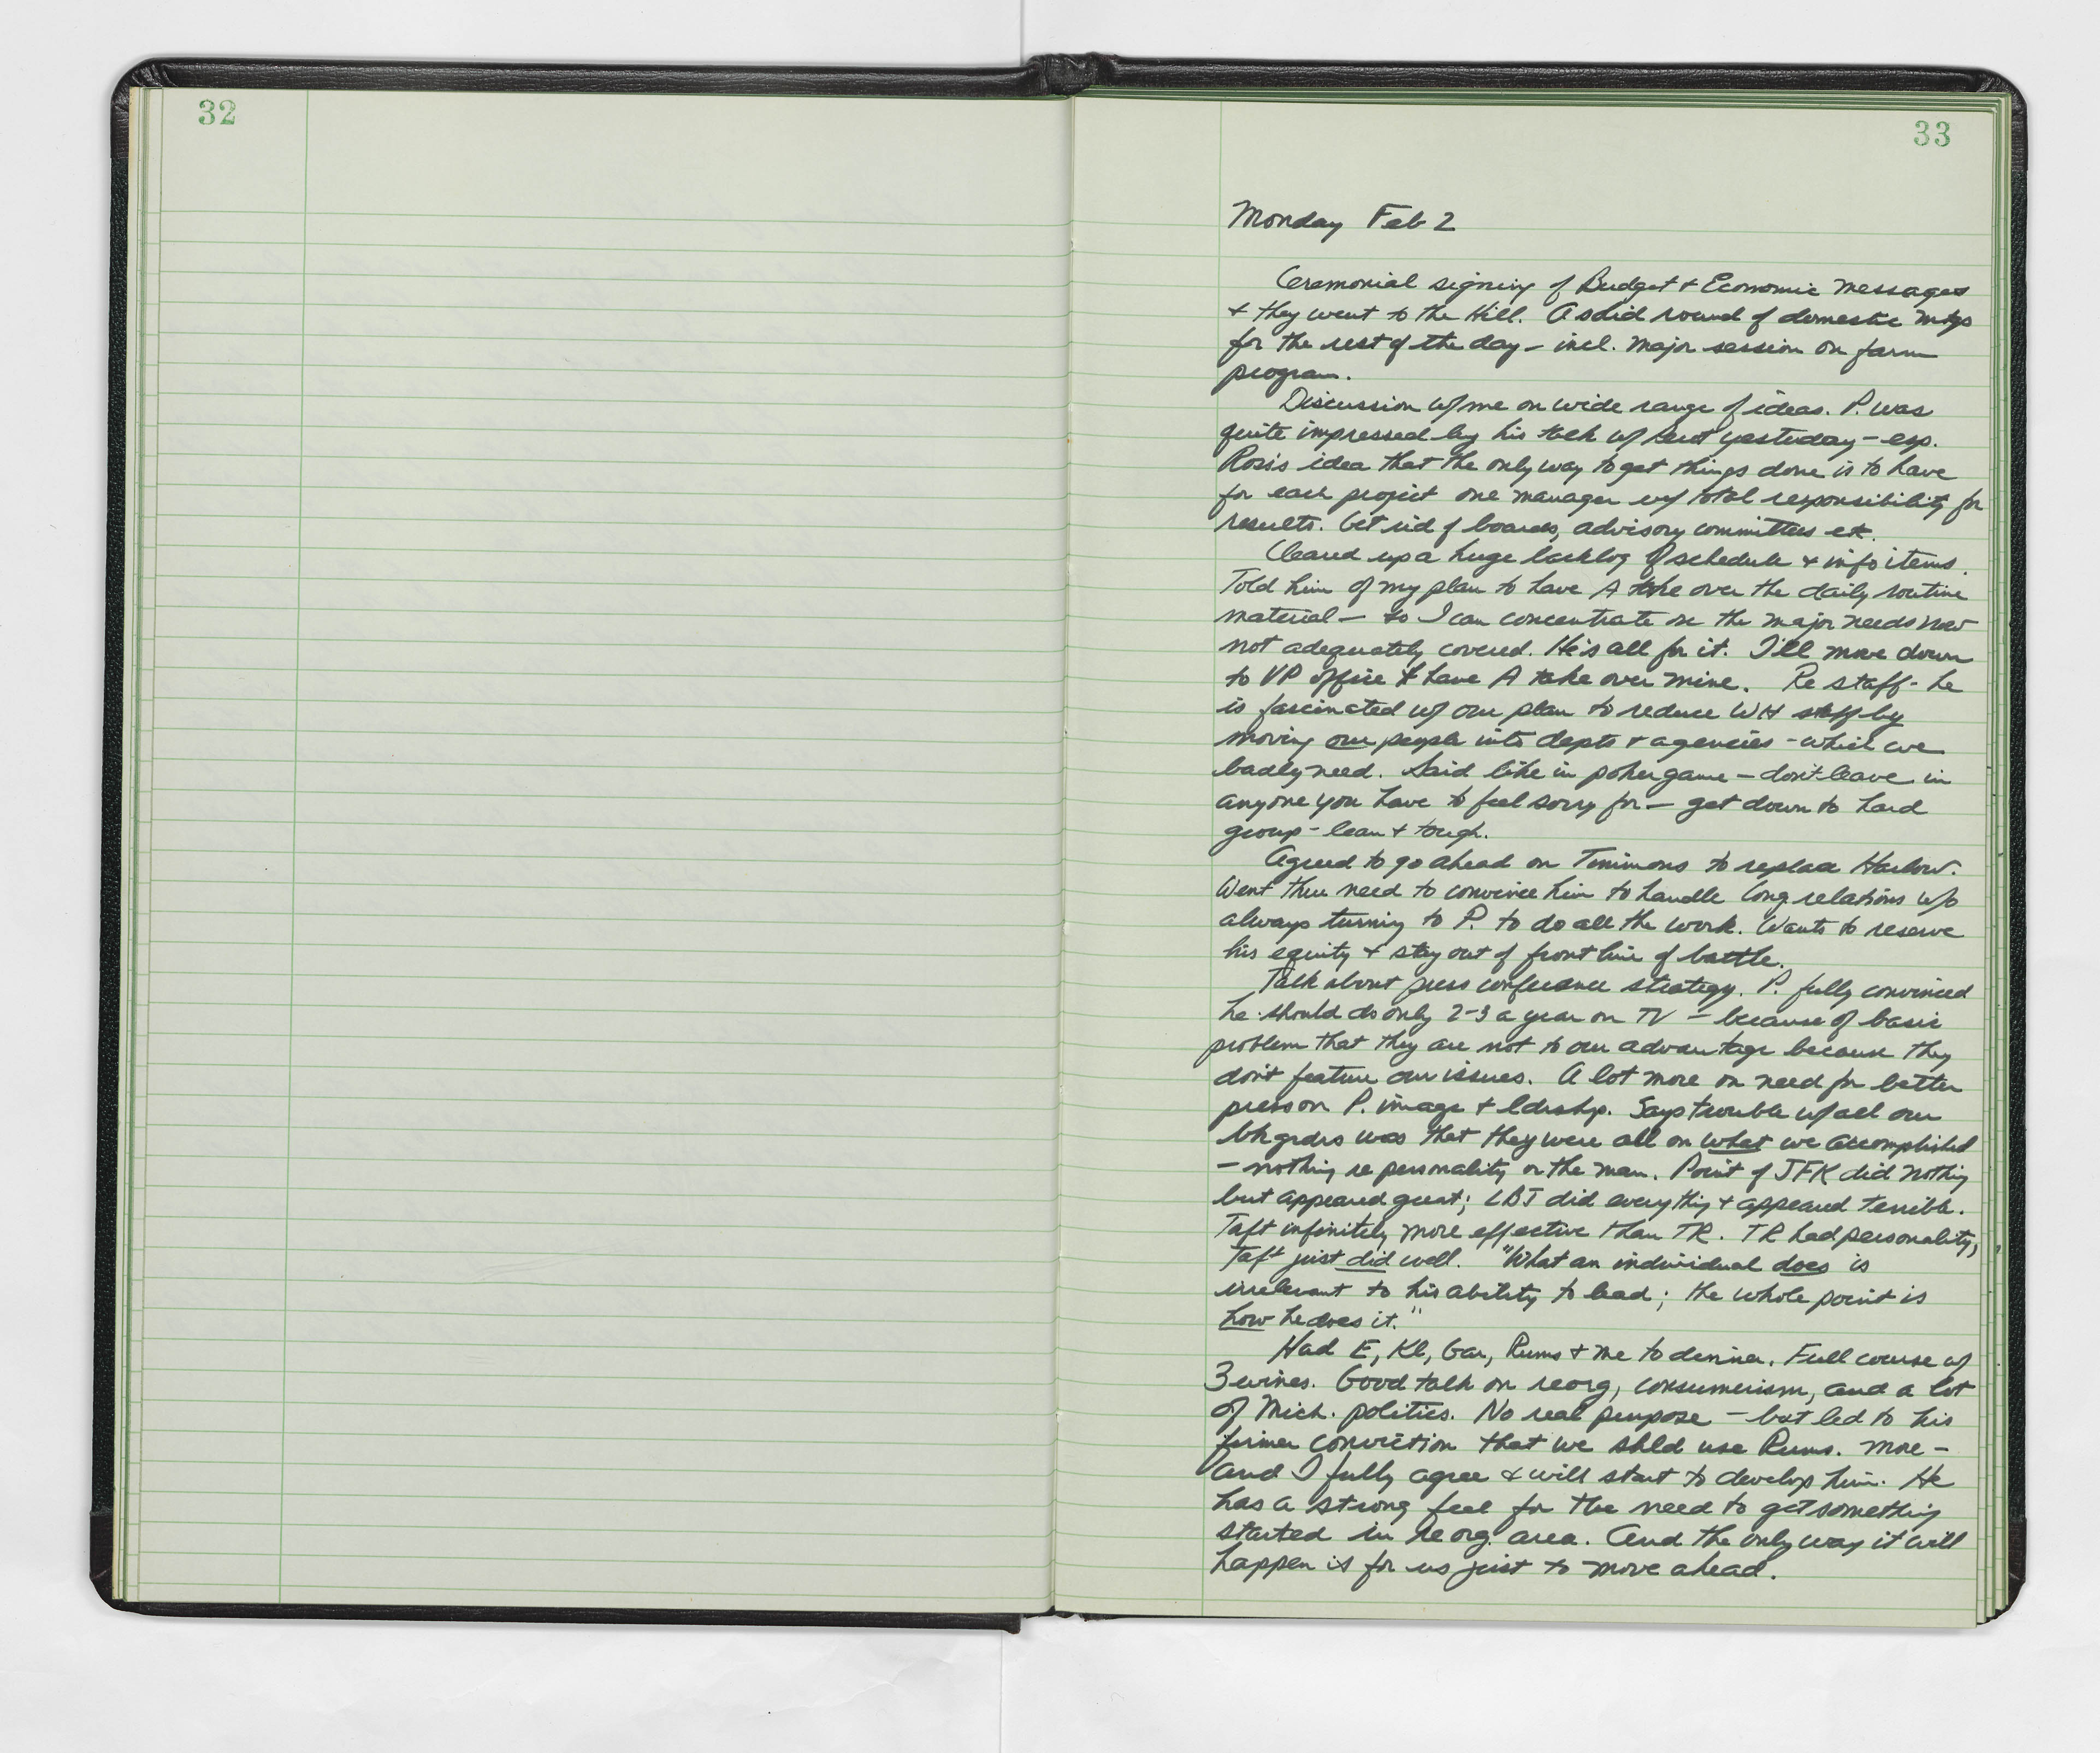 32
33
Monday Feb 2
Ceremonial signing of Budget + Economic messages
+ they went to the Hill. A solid round of domestic mtgs
for the rest of the day - incl. major session on farm
program.
Discussion w/ me on wide range of ideas. P. was
quite impressed by his talk w/ yesterday - esp.
Ross's idea that the only way to get things done is to have
for each project one manager w/ total responsibility for
results. Get rid of boards, advisory committees etc.
Cleared up a huge backlog of schedule + info items.
Told him of my plan to have A take over the daily routine
material - so I can concentrate on the major needs now
not adequately covered. He's all for it. I'll move down
to VP office & have A take over mine. Re staff - he
is fascinated w/ our plan to reduce WH staff by
moving our people into depts + agencies - which we
badly need. Said like in poker game - don't leave in
anyone you have to feel sorry for - get down to hard
group - lean + tough.
Agreed to go ahead on Timmons to replace Harlow.
Went thru need to convince him to handle Cong relations w/o
always turning to P. to do all the work. Wants to reserve
his equity + stay out of front line of battle.
Talk about press conference strategy. P. fully convinced
he should do only 2-3 a year on TV - because of basic
problem that they are not to our advantage because they
don't feature our issues. A lot more on need for better
press on P. image + ldrshp. Says trouble w/ all our
bkgrdrs was that they were all on what we accomplished
- nothing re personality or the man. Point of JFK did nothing
but appeared great; LBJ did everything + appeared terrible.
Taft infinitely more effective than TR. TR had personality,
Taft just did well. "What an individual does is
irrelevant to his ability to lead; the whole point is
how he does it."
Had E, Kl, Gar, Rums + me to dinner. Full course w/
3 wines. Good talk on reorg, consumerism, and a lot
of Mich. politics. No real purpose - but led to his
firmer conviction that we shld use Rums. more -
and I fully agree & will start to develop him. He
has a strong feel for the need to get something
started in reorg. area. And the only way it will
happen is for us just to move ahead.